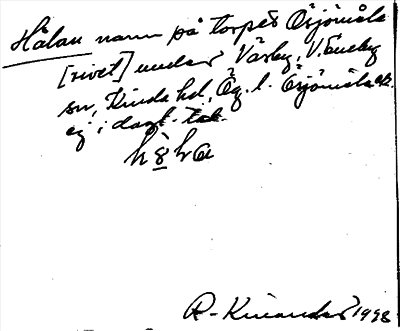 Hålan namn på torpet Örsjömåla
[rivet] under Västby, V. Eneby
sn, Kinda hd, Ög. l. Örsjömåla etc.
ej i dagl. tal.
R. Kinander 1998